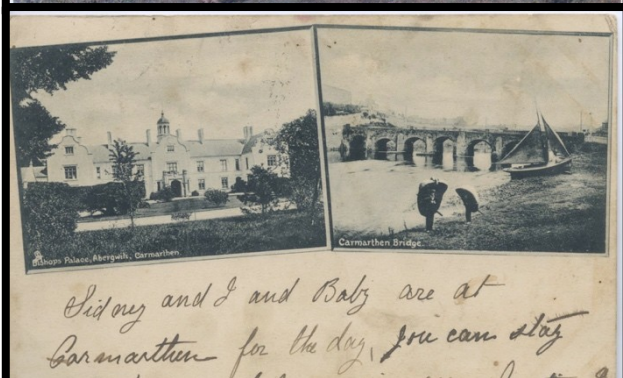 Bishops Palace, Abergwili, Carmarthen.
Carmarthen Bridge.
Sidney and I and Baby are at
Carmarthen for the day, you can stay